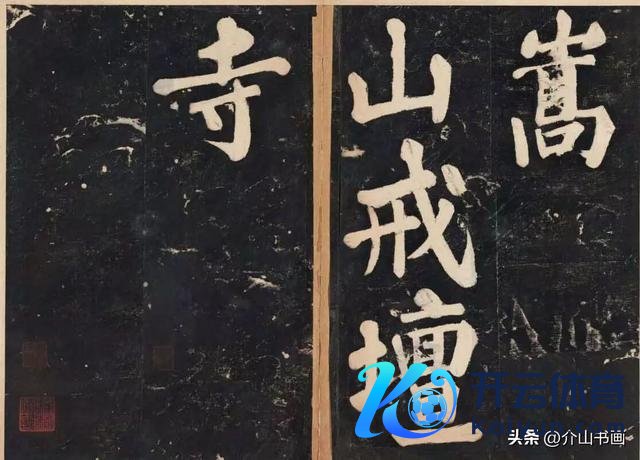 嵩
山戒壇
寺
开云体育
头条 @介山书画